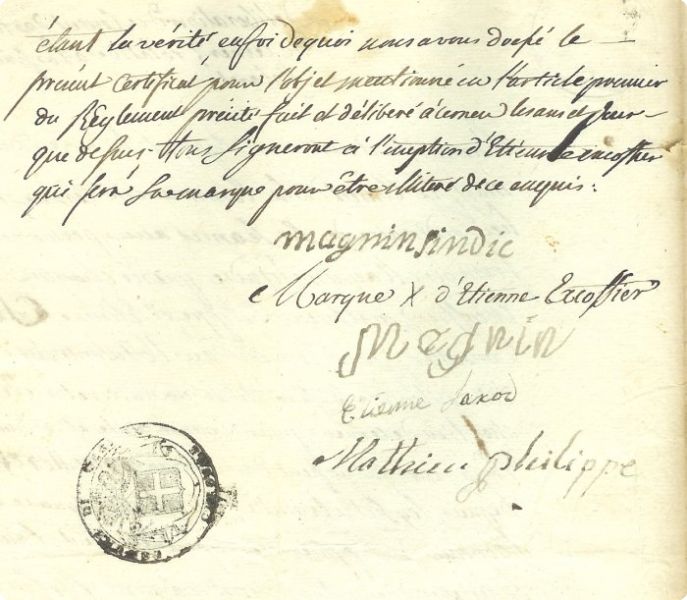 étant la vérité en foi de quoi nous avons dressé le
présent Certificat pour l'objet mentionné en l'article premier
du Règlement précité fait et délibéré à les ans et jour
que dessus. Tous signeront à l'éxeption d'Etienne excoffier
qui fera sa marque pour être illiteré de ce enquis:
magnin sindic
Marque X d'Etienne Excoffier
Magnin
Etienne Saxod
Mathieu philippe